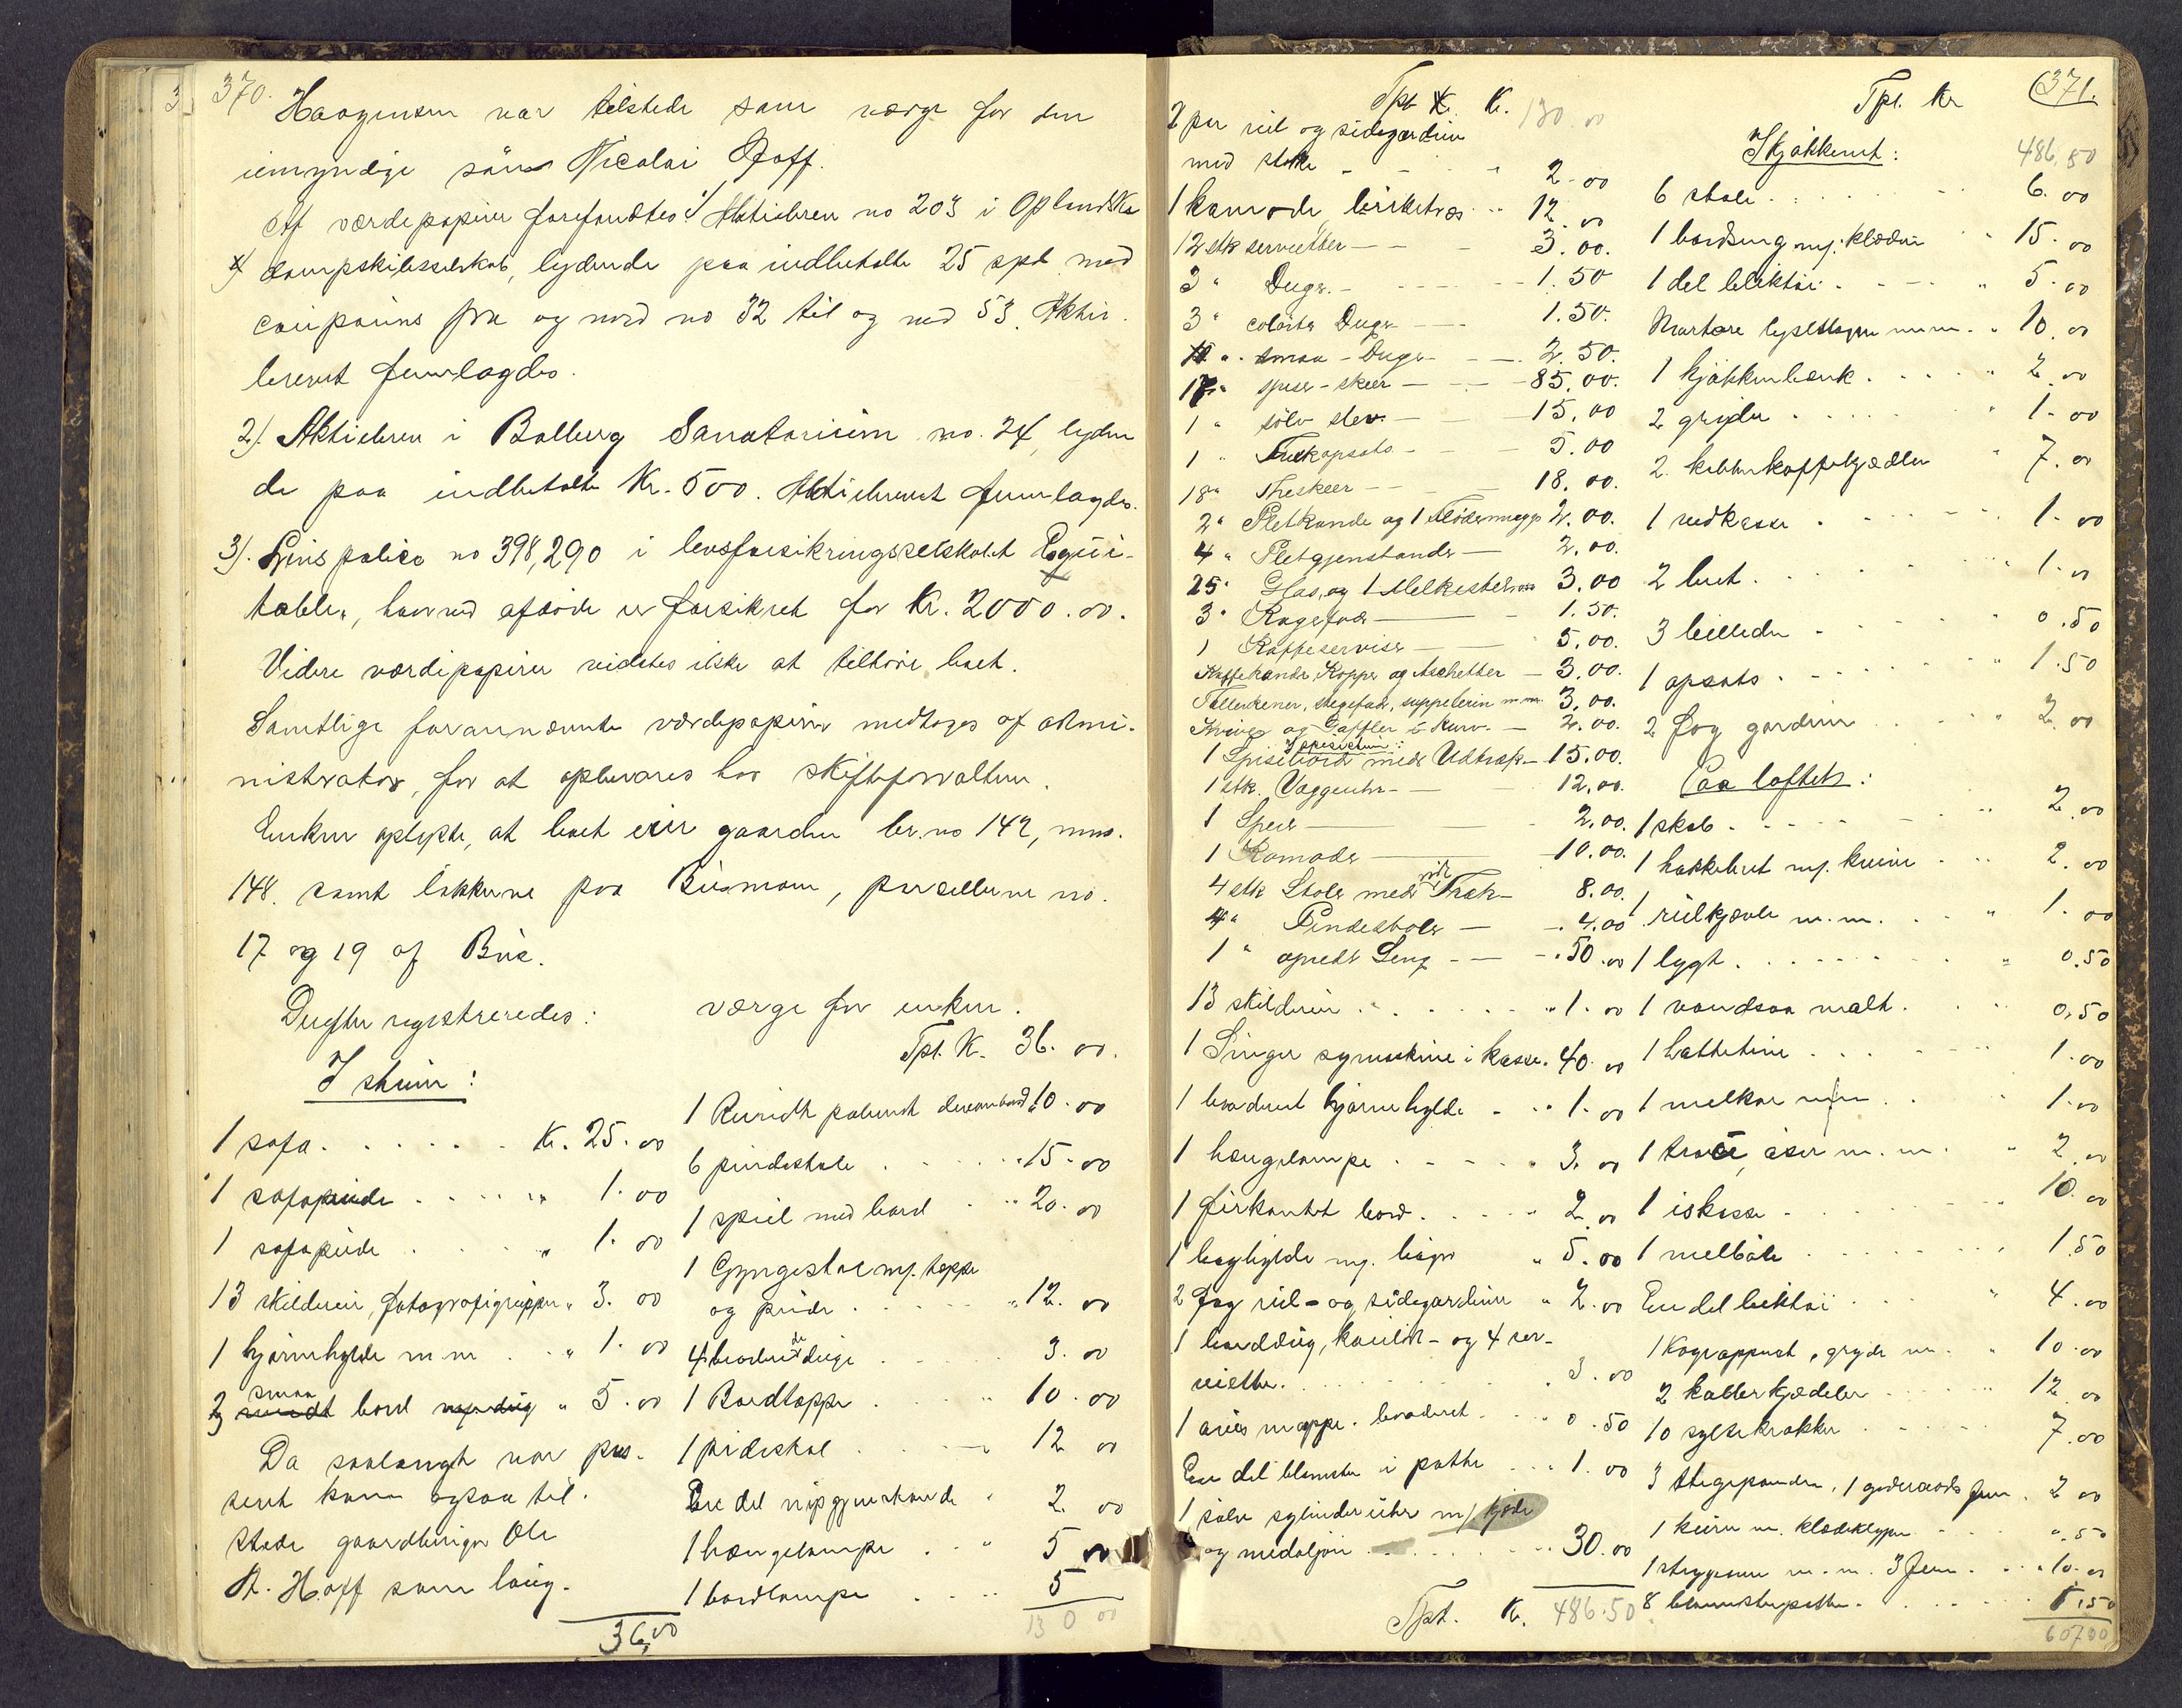 370.
Haagensen var tilstede som værge for den
umyndige sön Nicolai Hoff.
Af værdepapirer forefandtes: 1/ Aktiebrev no 203 i Oplandske
dampskibsselskab, lydende paa indbetalte 25 spd med
coupouns fra og med no 32 til og med 53. Aktie-
brevet fremlagdes.
2). Aktiebrev i Balberg Sanatorium no. 24, lyden
de paa indbetalte Kr. 500. Aktiebrevet fremlagdes.
3). Livspolice no 398,290 i livsforsikringsselskabet Equi-
table, hvorved afdöde er forsikret for Kr. 2000.00.
Videre værdipapirer vidstes ikke at tilhöre boet.
Samtlige forannævnte værdepapirer medtoges af admi-
nistrator, for at opbevares hos skifteforvalteren.
Enken oplyste, at boet eier gaarden br. no 142, mno.
148. samt lökkerne paa Busmoen, parcellerne no.
17 og 19 af Bue.
Derefter registreredes:
I stuen:
1 sofa. Kr. 25.00
1 sofapude " 1.00
1 sofapude " 1.00
13 skilderier, fotografigrupper " 3.00
1 hjörnehylde m m " 1.00
2 smaa bord " 5.00
Da saalangt var pas-
seret kom ogsaa til-
stede gaardbruger Ole
A. Hoff som laug-
36,00
værge for enken.
Tpt. K. 36.00.
1 Rundt poleret bord " 10.00
6 pindestole " 15.00
1 speil med bord " 20.00
1 Gyngestol m/. teppe
og pude " 12.00
4 broderede duge 3.00
1 Bordteppe " 10.00
1 pidestal " 12 00
En del nipsgjenstande " 2 00
1 hængelampe " 5 00
1 bordlampe 5
130 00
371.
Tpt. Kr. 130.00
2 par rul og sidegardiner
med stokke " 2.00
1 komode, birketræ " 12.00
12 stk servietter 3.00.
3 " Duge. 1.50
3 " colörte Duge 1.50.
10 " smaa-Duge 2.50.
17 " spise-skeer 85.00.
1 " sölv slev. 15.00
1 " Frukopsats 5.00
18 " Theskeer 18.00.
2 " Pletkande og 1 Flödemugge 2.00.
4 " Pletgjenstande 2.00.
25 " Glas, og 1 Melkestel 3.00
3 " Kagefade 1.50.
1 Kaffeservise 5.00.
Kaffekande, Kopper og Aschetter 3.00.
Tallerkener, stegefade, suppeterin m m. 3.00.
Knive og Gaffler i Kurv. 2.00.
I spisestuen:
1 Spisebord med Udtræk 15.00.
1 stk. Vægguhr 12.00.
1 Speil 2.00.
1 Komode 10.00.
4 stk Stole med Træk 8.00.
4 " Pindestole 4.00
1 " opredt Seng 50.00
13 skilderier " 1.00
1 Singer symaskine i kasse " 40.00
1 broderet hjörnehylde " 1.00
1 hængelampe " 3.00
1 firkantet bord " 2.00
1 boghylde m/. böger " 5.00
2 fag rul- og sidegardiner " 2.00
1 borddug, og 4 ser-
vietter. 3.00
1 avis mappe. broderet 0.50
En del blomster i potte 1.00
1 sölv sylinderuhr m/ kjede
og medaljon 30.00
Tpt. Kr. 486.50
Tpt. Kr
486,50
I kjökkenet:
6 stole 6.00
1 bordseng m/. klæder 15.00
1 del bliktöi " 5.00
Mortere lysestager m.m. " 10.00
1 kjökkenbænk " 2.00
2 gryder " 1.00
2 kobberkaffekjedler " 7.00
1 vedkasse 1.00
2 bret 1.00
3 billeder 0.50
1 opsats 1.50
2 fag gardin 2.00
Paa loftet:
1 skab " 2.00
1 hakkebret m/. kniv 2.00
1 rulkjævle m.m. " 1.00
1 lygt " 0.50
1 vandsaa malt. 0,50
1 höttetine 1.00
1 melkar m m 1.00
1 trau, öser m.m. " 2.00
1 iskasse 10.00
1 melböle 1.50
En del bliktöi " 4.00
1 Kogeapparat, gryde m. " 10.00
2 kobberkjedeler 12.00
10 syltekrukker 7.00
3 stegepander, 1 goderaads jern " 2.00
1 kurv m. klædeklyper ".50
1 strygeovn m.m. 3 jern " 10.00
8 blomsterpotter 1.50
607.00